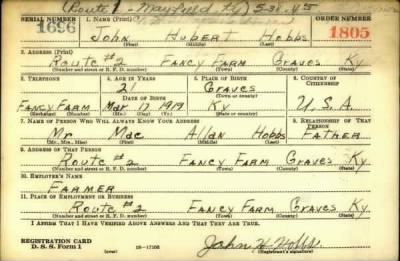 Route 1 - Mayfield, Ky) 5-31-45
SERIAL NUMBER 1. NAME (Print) ORDER NUMBER
1696 John Hubert Hobbs 1805
2. ADDRESS (Print)
Route #2 Fancy Farm Graves Ky
(Number and street or R. F. D. number) (Town) (County) (State)
3. TELEPHONE 4. AGE IN YEARS 5. PLACE OF BIRTH 6. COUNTRY OF CITIZENSHIP
21 Graves
DATE OF BIRTH (Town or county)
Fancy Farm Mar 17 1919 Ky U.S.A.
(Exchange) (Number) (Mo.) (Day) (Yr.) (State or country)
7. NAME OF PERSON WHO WILL ALWAYS KNOW YOUR ADDRESS 8. RELATIONSHIP OF THAT PERSON
Mr Mac Allan Hobbs Father
(Mr., Mrs., Miss) (First) (Middle) (Last)
9. ADDRESS OF THAT PERSON
Route #2 Fancy Farm Graves Ky
(Number and street or R. F. D. number) (Town) (County) (State)
10. EMPLOYER'S NAME
Farmer
11. PLACE OF EMPLOYMENT OR BUSINESS
Route #2 Fancy Farm Graves Ky
(Number and street or R. F. D. number) (Town) (County) (State)
I AFFIRM THAT I HAVE VERIFIED ABOVE ANSWERS AND THAT THEY ARE TRUE.
REGISTRATION CARD
D. S. S. Form 1 (over) 16-17105 John H Hobbs
(Registrant's signature)